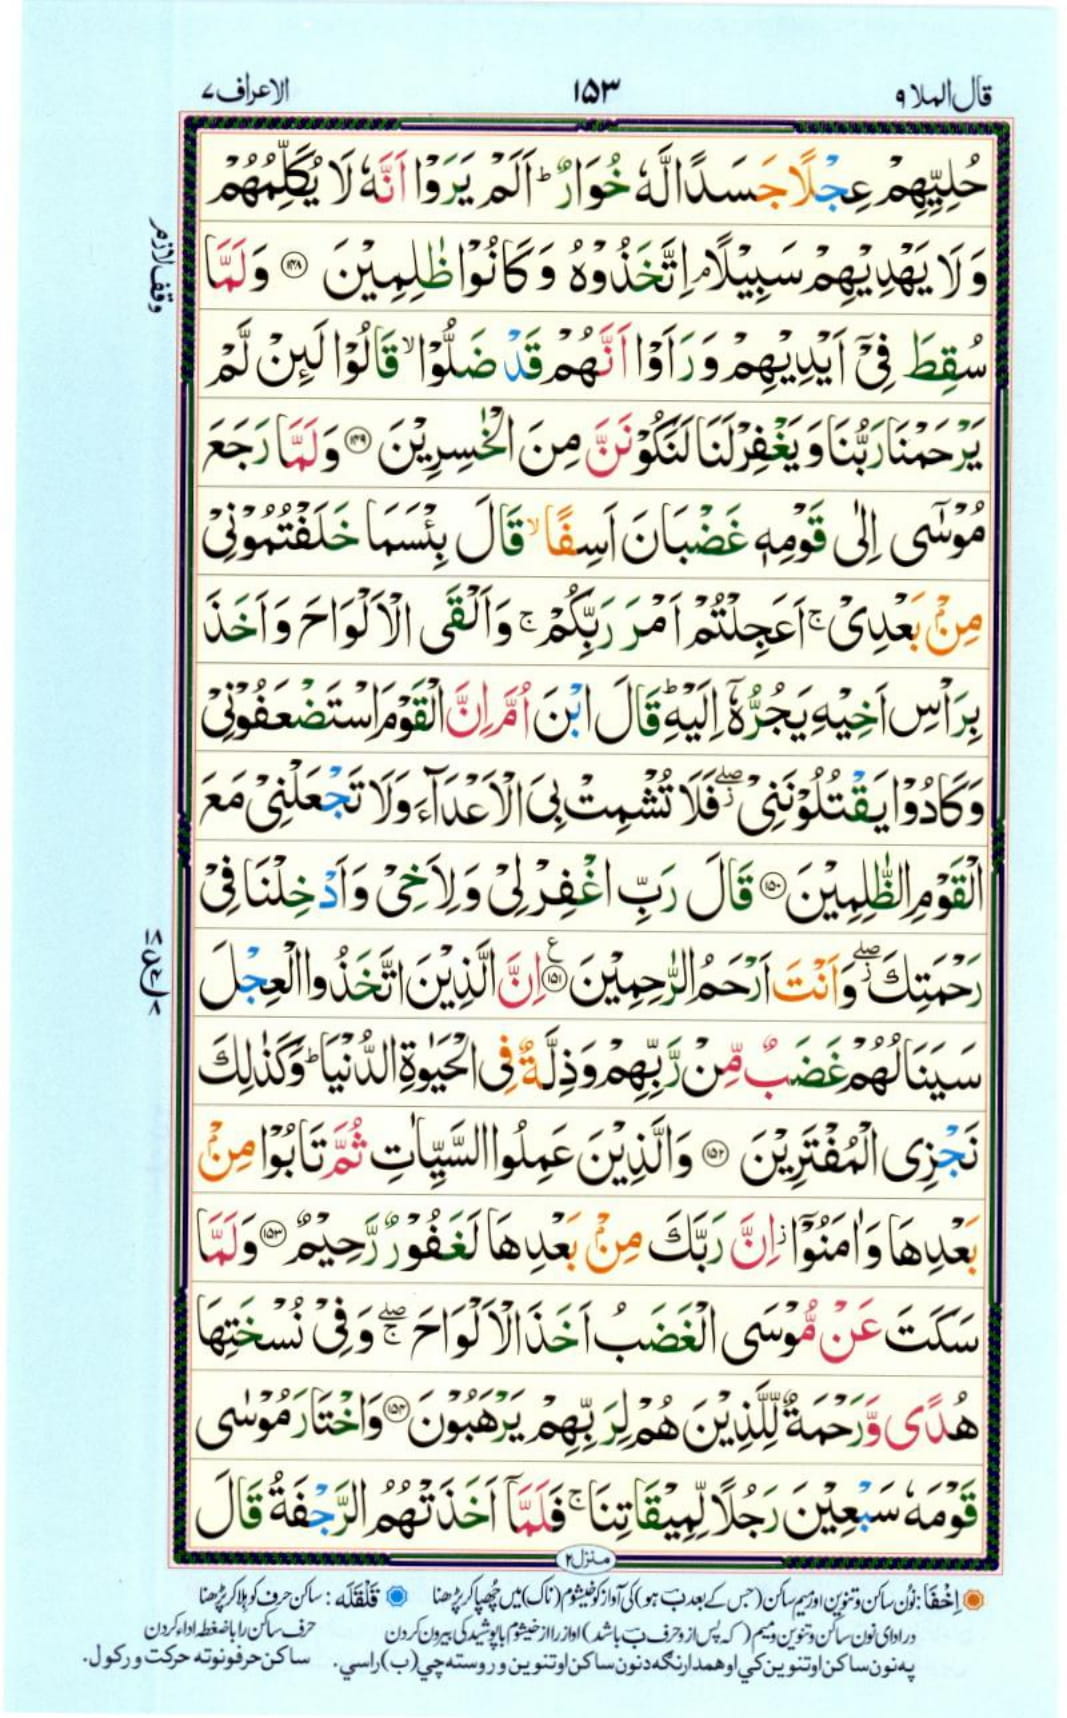 قال الملا ٩
١٥٣
الاعراف ٧
حُلِيِّهِمْ عِجْلًا جَسَدًا لَّهٗ خُوَارٌ ؕ اَلَمْ يَرَوْا اَنَّهٗ لَا يُكَلِّمُهُمْ
وَلَا يَهْدِيْهِمْ سَبِيْلًا ۘ اِتَّخَذُوْهُ وَكَانُوْا ظٰلِمِيْنَ ۝۱۴۸ وَلَمَّا
سُقِطَ فِىْۤ اَيْدِيْهِمْ وَرَاَوْا اَنَّهُمْ قَدْ ضَلُّوْا ۙ قَالُوْا لَئِنْ لَّمْ
يَرْحَمْنَا رَبُّنَا وَيَغْفِرْ لَنَا لَنَكُوْنَنَّ مِنَ الْخٰسِرِيْنَ ۝۱۴۹ وَلَمَّا رَجَعَ
مُوْسٰٓى اِلٰى قَوْمِهٖ غَضْبَانَ اَسِفًا ۙ قَالَ بِئْسَمَا خَلَفْتُمُوْنِىْ
مِنْۢ بَعْدِىْ ۚ اَعَجِلْتُمْ اَمْرَ رَبِّكُمْ ۚ وَاَلْقَى الْاَلْوَاحَ وَاَخَذَ
بِرَاْسِ اَخِيْهِ يَجُرُّهٗۤ اِلَيْهِ ؕ قَالَ ابْنَ اُمَّ اِنَّ الْقَوْمَ اسْتَضْعَفُوْنِىْ
وَكَادُوْا يَقْتُلُوْنَنِىْ ۖ فَلَا تُشْمِتْ بِىَ الْاَعْدَآءَ وَلَا تَجْعَلْنِىْ مَعَ
الْقَوْمِ الظّٰلِمِيْنَ ۝۱۵۰ قَالَ رَبِّ اغْفِرْ لِىْ وَلِاَخِىْ وَاَدْخِلْنَا فِىْ
رَحْمَتِكَ ۖ وَاَنْتَ اَرْحَمُ الرّٰحِمِيْنَ ۝۱۵۱ ع اِنَّ الَّذِيْنَ اتَّخَذُوا الْعِجْلَ
سَيَنَالُهُمْ غَضَبٌ مِّنْ رَّبِّهِمْ وَذِلَّةٌ فِى الْحَيٰوةِ الدُّنْيَا ؕ وَكَذٰلِكَ
نَجْزِى الْمُفْتَرِيْنَ ۝۱۵۲ وَالَّذِيْنَ عَمِلُوا السَّيِّاٰتِ ثُمَّ تَابُوْا مِنْۢ
بَعْدِهَا وَاٰمَنُوْۤا ؗ اِنَّ رَبَّكَ مِنْۢ بَعْدِهَا لَغَفُوْرٌ رَّحِيْمٌ ۝۱۵۳ وَلَمَّا
سَكَتَ عَنْ مُّوْسَى الْغَضَبُ اَخَذَ الْاَلْوَاحَ ۖۚ وَفِىْ نُسْخَتِهَا
هُدًى وَّرَحْمَةٌ لِّلَّذِيْنَ هُمْ لِرَبِّهِمْ يَرْهَبُوْنَ ۝۱۵۴ وَاخْتَارَ مُوْسٰى
قَوْمَهٗ سَبْعِيْنَ رَجُلًا لِّمِيْقَاتِنَا ۚ فَلَمَّاۤ اَخَذَتْهُمُ الرَّجْفَةُ قَالَ
وقف لازم
منزل ٢
اِخْفَا: نُون ساکن و تنوین اور میم ساکن (جس کے بعد ب ہو) کی آواز کو خیشوم (ناک) میں چُھپا کر پڑھنا
قَلْقَلَه: ساکن حرف کو ہلا کر پڑھنا
در ادای نون ساکن و تنوین و میم (که پس از و حرف ب باشد) آواز را از خیشوم با پوشیدگی بیرون کردن
حرف ساکن را با ضغطه اداء کردن
په نون ساکن او تنوین کي او همدارنګه د نون ساکن او تنوین وروسته چي (ب) راسي.
ساکن حرفونو ته حرکت ورکول.